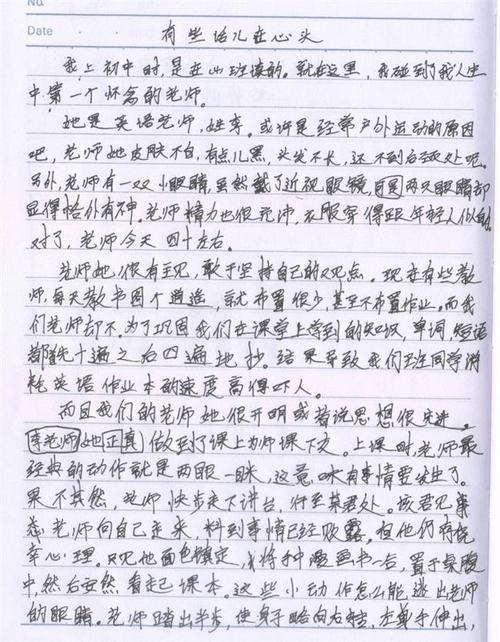 No.
Date
有些话儿在心头
我上初中时,是在山班读的。就在这里,我碰到了我人生
中第一个怀念的老师。
她是英语老师,姓李。或许是经常户外运动的原因
吧,老师她皮肤不白,有点儿黑,头发不长,还不到后颈处呢。
另外,老师有一双小眼睛,虽然戴了近视眼镜,两只眼睛却
显得格外有神。老师精力也很充沛,衣服穿得跟年轻人似的。
对了,老师今天四十左右。
老师她很有主见,敢于坚持自己的观点。现在有些教
师,每天教书图个逍遥,就布置很少,甚至不布置作业。而我
们老师却不。为了巩固我们在课堂上学到的知识,单词,短语
都是十遍之后四遍地抄。结果导致我们班同学消
耗英语作业本的速度高得吓人。
而且我们的老师她很开明或者说思想很先进。
李老师她正真做到了课上为师课下友。上课时,老师最
经典的动作就是两眼一眯,这竟味有事情要发生了。
果不其然,老师快步走下讲台,行至某君处。该君见
老师向自己走来,料到事情已经败露。但他仍有侥
幸心理。只见他面色镇定,将手中漫画书一合,置于桌腹
中,然后安然看起课本。这些小动作怎么能逃出老师
的眼睛。老师踏出半步,使身子略向右倾,左单手伸出,